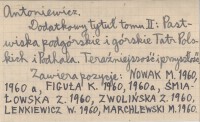 Antoniewicz.
Dodatkowy tytuł tomu II: Past-
wiska podgórskie i górskie Tatr Pols-
kich i Podhala. Teraźniejszość i przyszłość.
Zawiera pozycje: NOWAK M. 1960,
1960 a, FIGUŁA K. 1960, 1960a, ŚMIA-
ŁOWSKA Z. 1960, ZWOLIŃSKA Z. 1960,
LENKIEWICZ W. 1960, MARCHLEWSKI M. 1960.